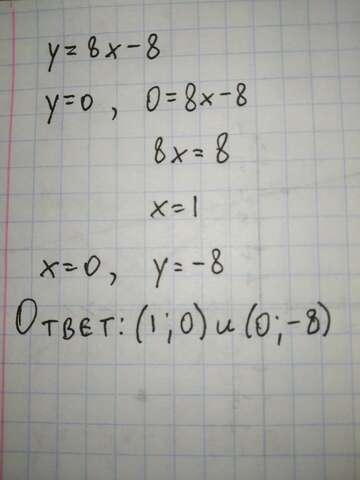 y=8x-8
y=0, 0=8x-8
8x=8
x=1
x=0, y=-8
Ответ: (1;0) и (0;-8)